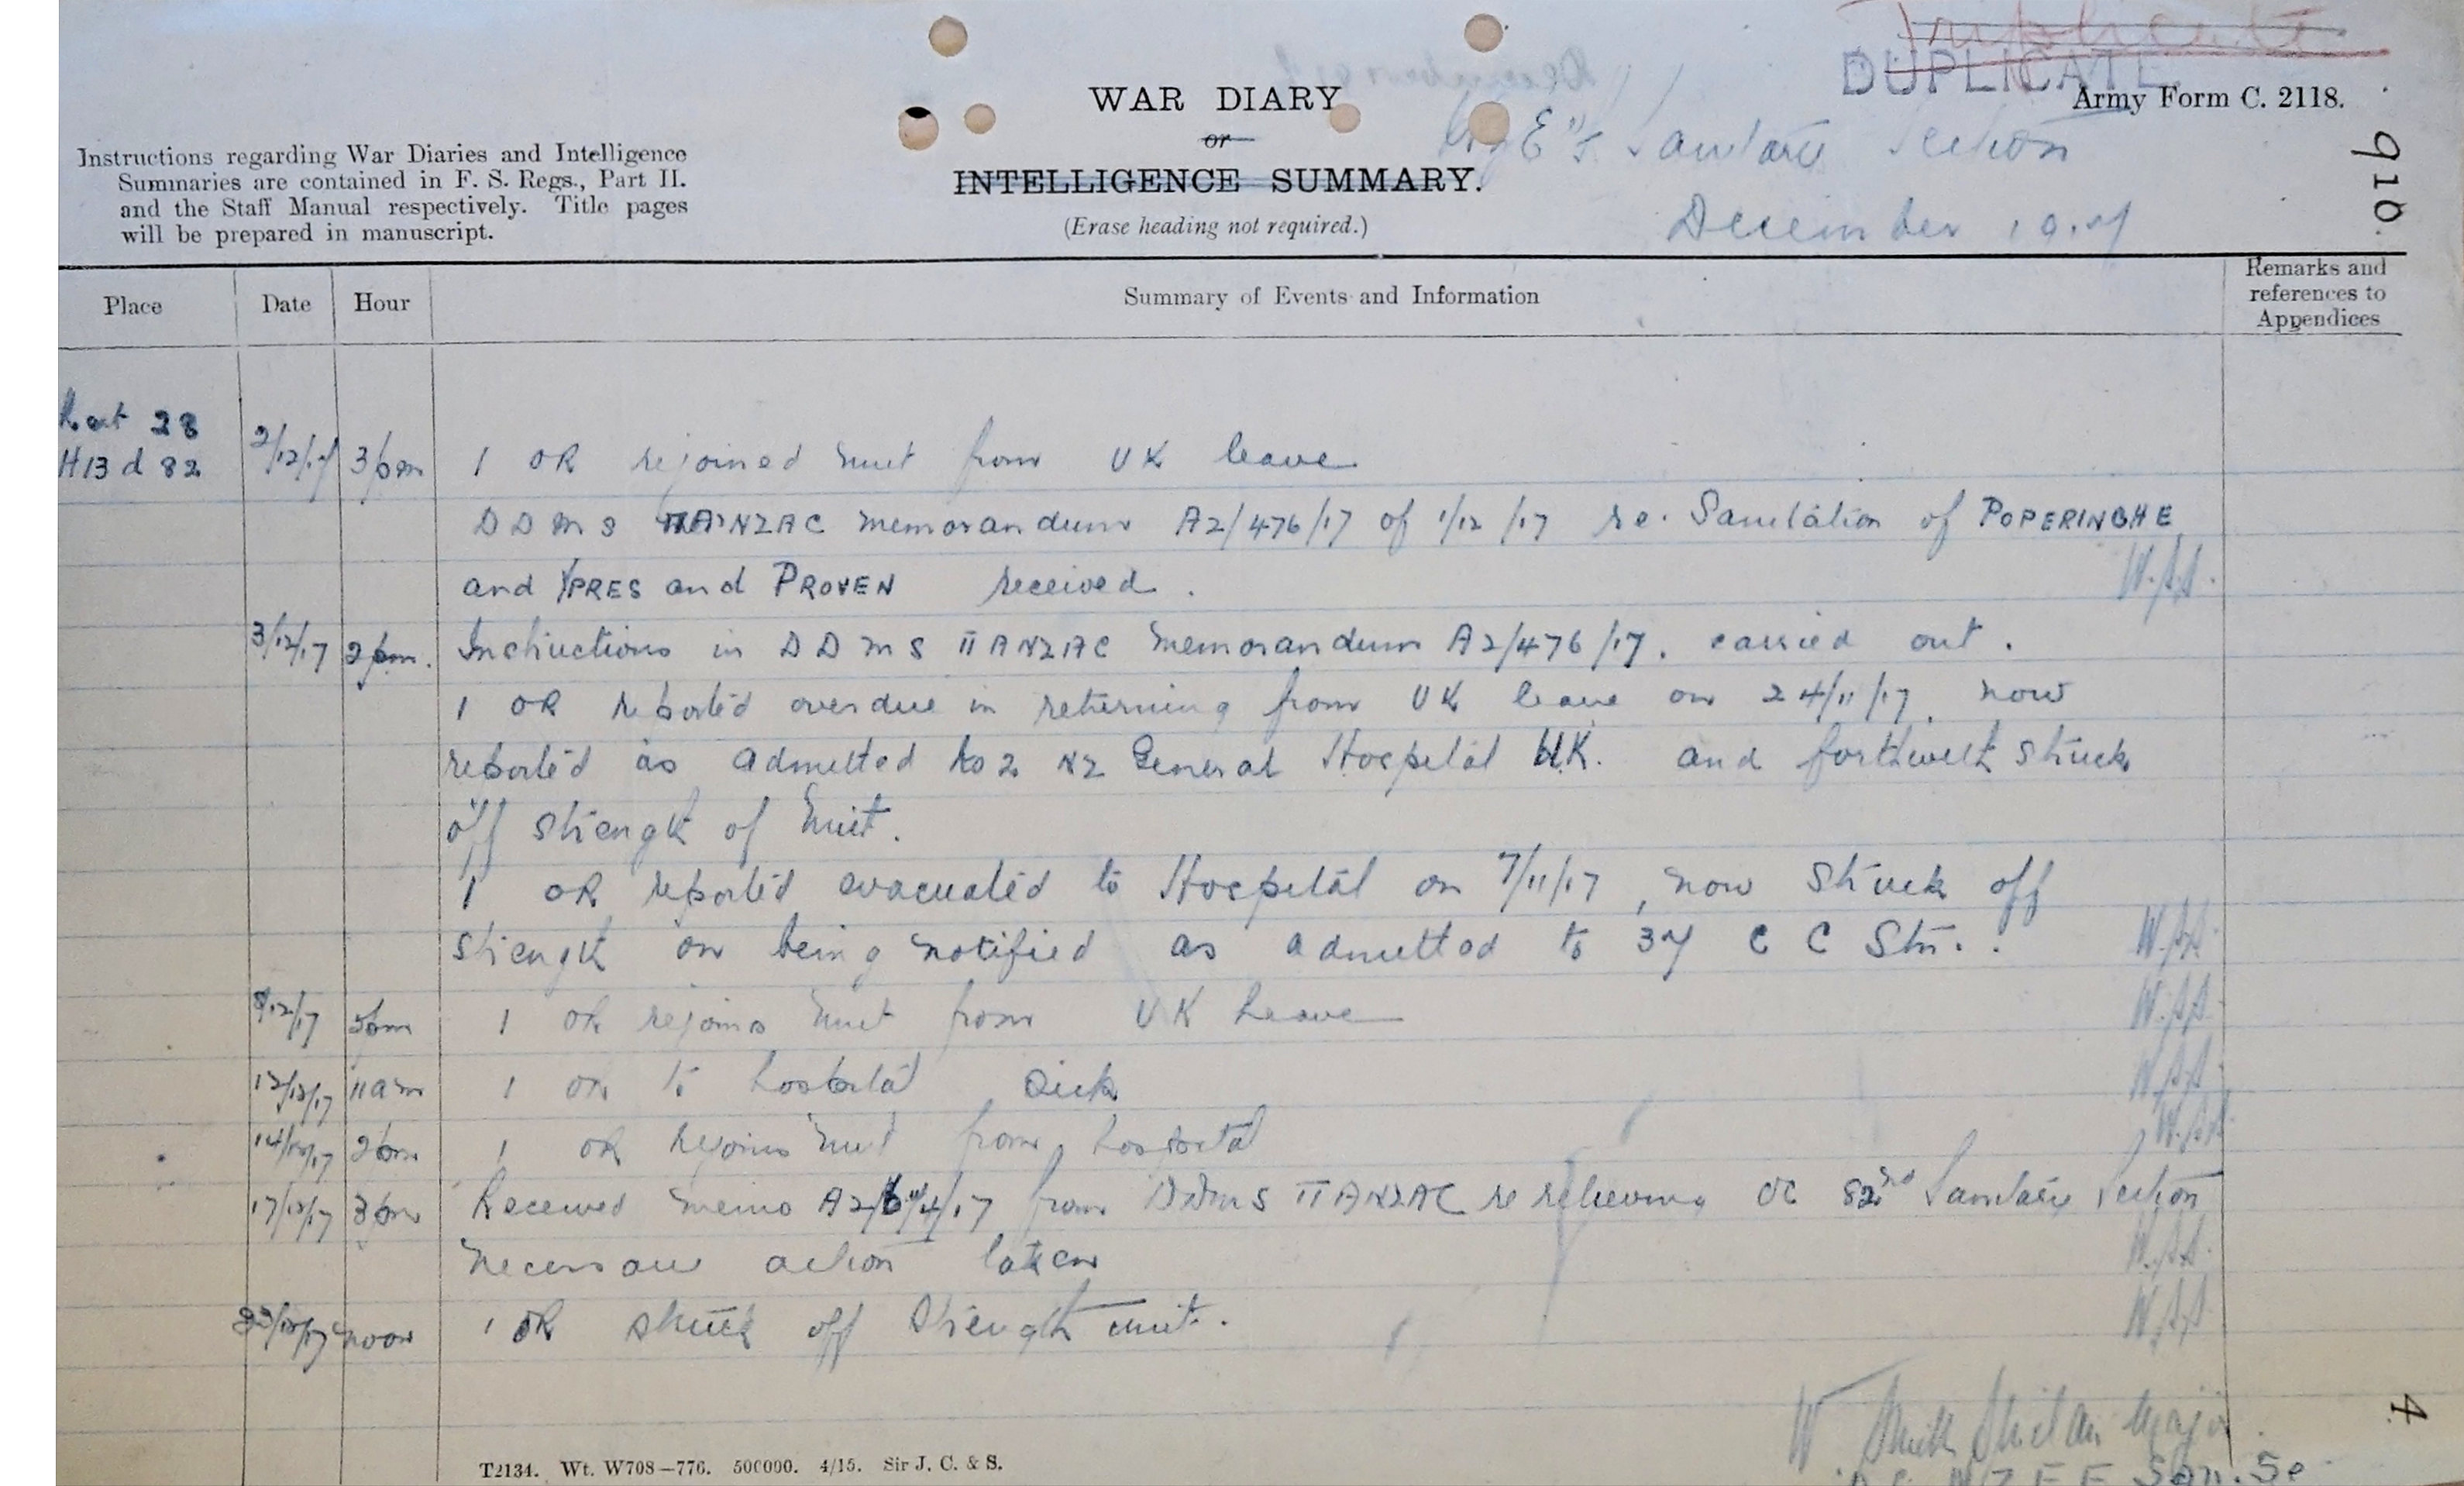 Triplicate
DUPLICATE
Army Form C. 2118.
WAR DIARY
or
INTELLIGENCE SUMMARY.
(Erase heading not required.)
Instructions regarding War Diaries and Intelligence
Summaries are contained in F. S. Regs., Part II.
and the Staff Manual respectively. Title pages
will be prepared in manuscript.
Sanitary Section
December 1917
910.
Place Date Hour Summary of Events and Information Remarks and references to Appendices
28
H13 d 82 2/12/17 3pm 1 OR rejoined unit from UK leave
D D M S II ANZAC memorandum A2/476/17 of 1/12/17 re. Sanitation of POPERINGHE
and YPRES and PROVEN received. W.S.S.
3/12/17 2pm. Instructions in D D M S II ANZAC memorandum A2/476/17. carried out.
1 OR reported overdue in returning from UK leave on 24/11/17, now
reported as admitted No 2 NZ General Hospital U.K. and forthwith struck
off strength of unit.
1 OR reported evacuated to Hospital on 7/11/17, now struck off
strength on being notified as admitted to 37 C C Stn. W.S.S.
12/17 5pm 1 OR rejoins unit from UK Leave W.S.S.
11am 1 OR to hospital Sick W.S.S.
14/12/17 2pm 1 OR rejoins unit from hospital W.S.S.
17/12/17 3pm Received memo from DDMS II ANZAC re relieving OC 82nd Sanitary Section
necessary action taken W.S.S.
noon 1 OR struck off strength unit. W.S.S.
W Major
N Z E F San. Se
4.
T2134. Wt. W708—776. 500000. 4/15. Sir J. C. & S.